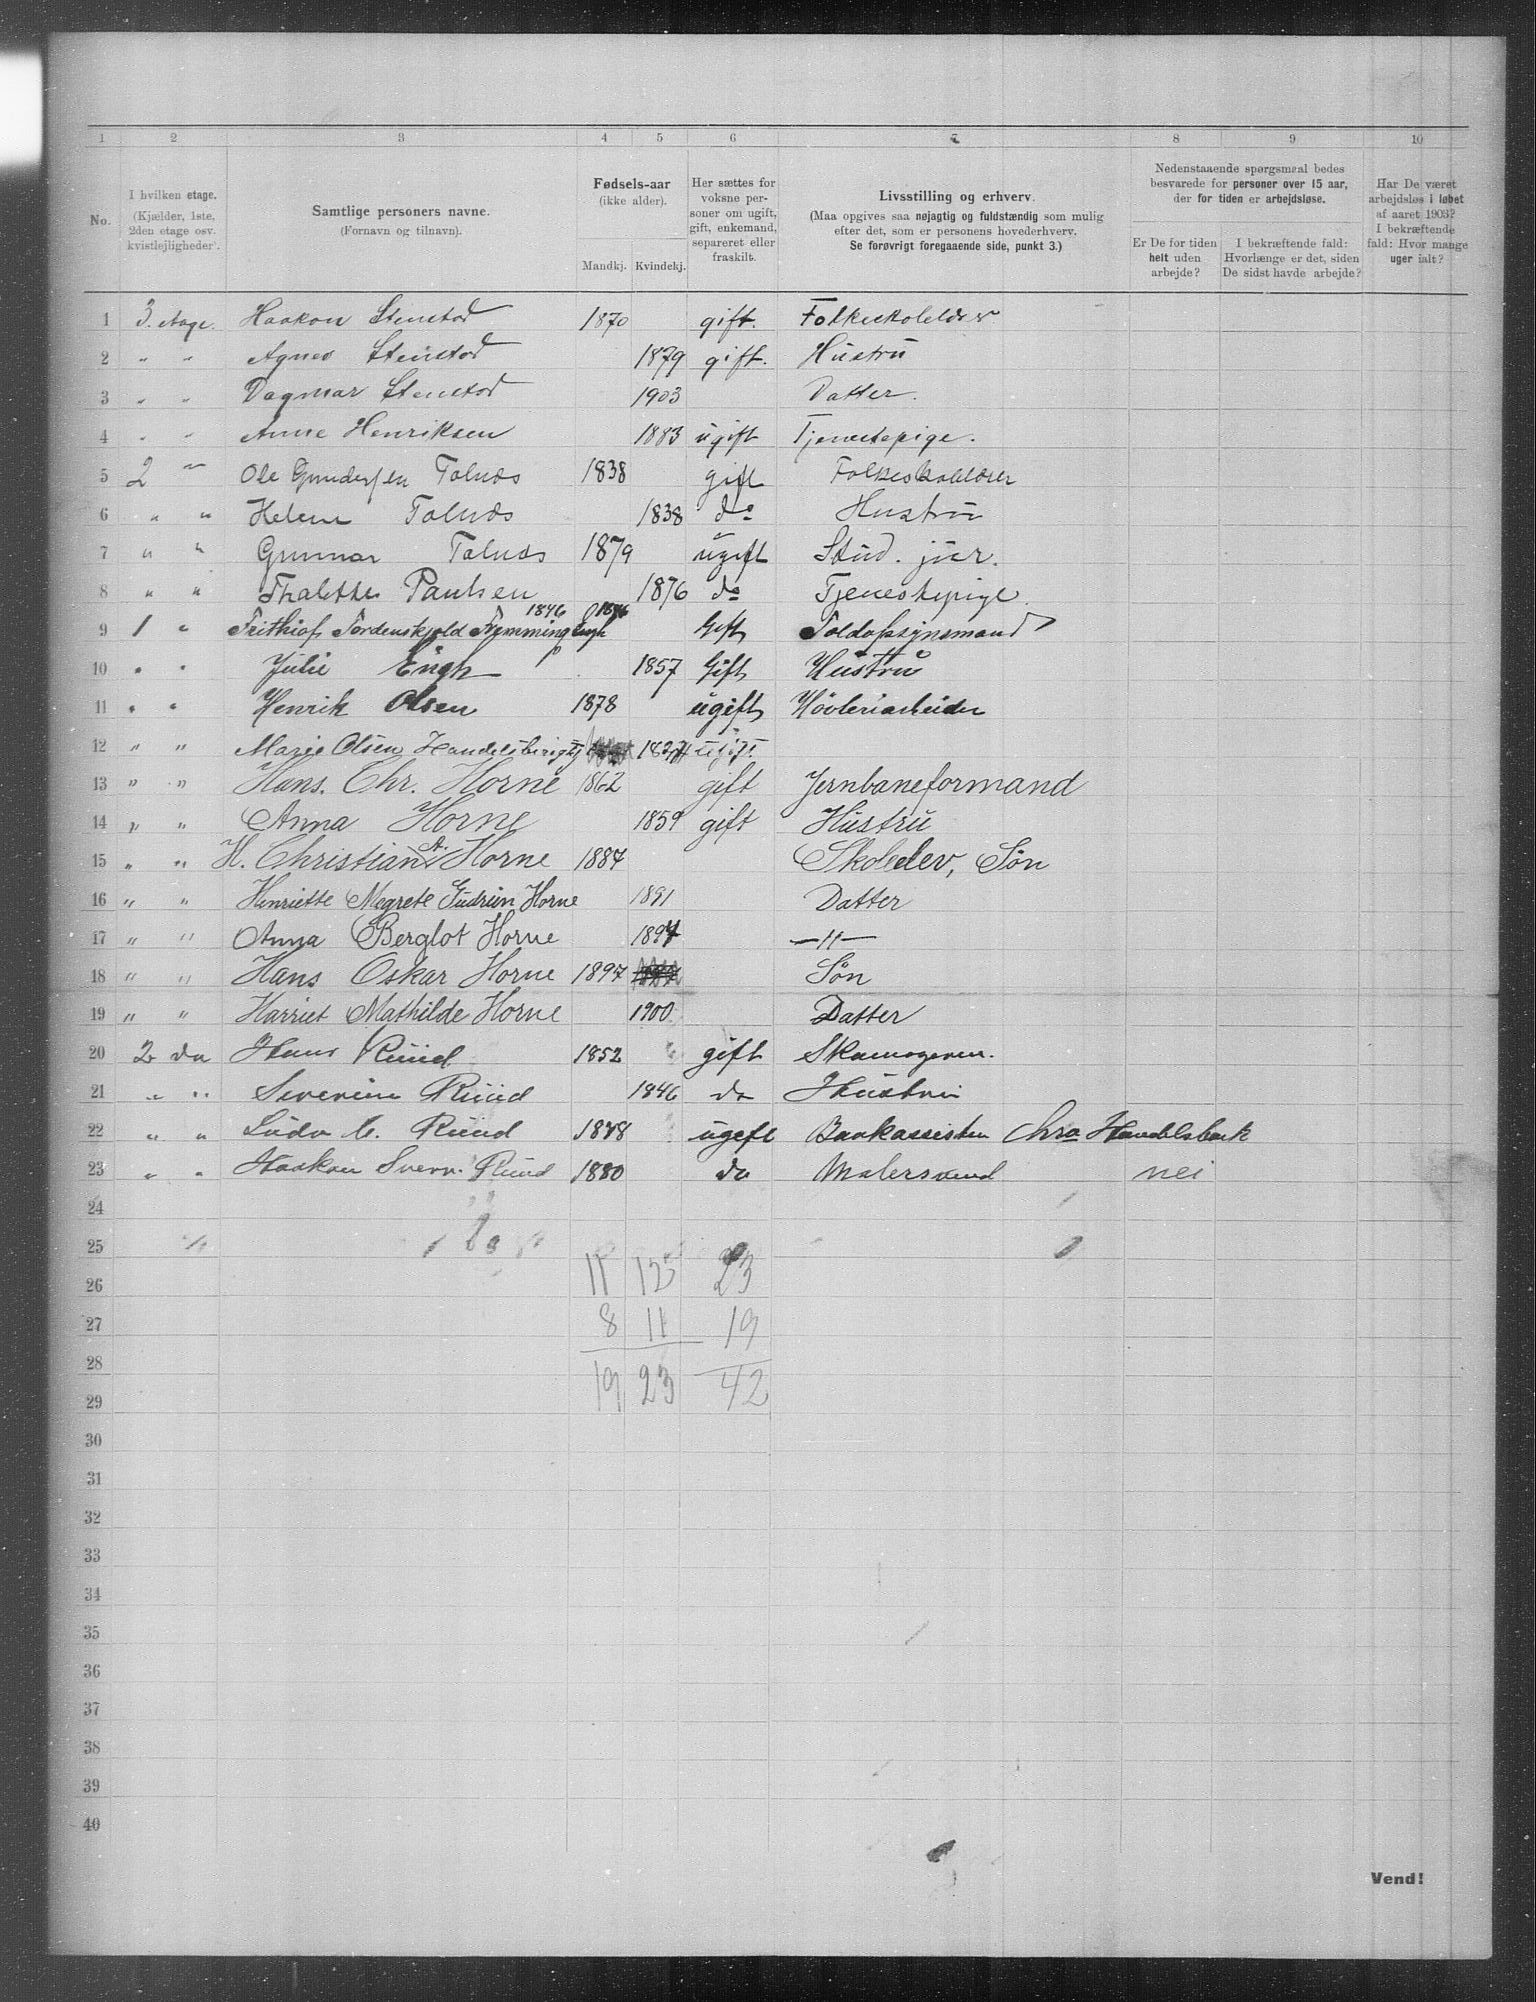 1 2 3 4 5 6 7 8 9 10
No.
I hvilken etage.
(Kjælder, 1ste, 2den etage osv. kvistlejligheder).
Samtlige personers navne.
(Fornavn og tilnavn).
Fødsels-aar
(ikke alder).
Mandkj. Kvindekj.
Her sættes for voksne personer om ugift, gift, enkemand, separeret eller fraskilt.
Livsstilling og erhverv.
(Maa opgives saa nøjagtig og fuldstændig som mulig
efter det, som er personens hovederhverv.
Se forøvrigt foregaaende side, punkt 3.)
Nedenstaaende spørgsmaal bedes
besvarede for personer over 15 aar,
der for tiden er arbejdsløse.
Er De for tiden helt uden arbejde?
I bekræftende fald: Hvorlænge er det, siden De sidst havde arbejde?
Har De været arbejdsløs i løbet af aaret 1903? I bekræftende fald: Hvor mange uger ialt?
1 3. Etage. Haakon Stenstad 1870 gift. Folkeskolelærer
2 " " Agnes Stenstad 1879 gift. Hustru
3 " " Dagmar Stenstad 1903 Datter.
4 " " Anne Henriksen 1883 ugift Tjenestepige.
5 2 " Ole Gundersen Talnæs 1838 gift Folkeskolelærer
6 " " Helene Talnæs 1838 do Hustru
7 " " Gunnar Talnæs 1879 ugift Stud. jur.
8 " " Thalette Paulsen 1876 do Tjenestepige.
9 1 " Frithiof Tordenskjold Flemming Engh 1846 1846 Gift Toldopsynsmand
10 " " Julie Engh 1857 Gift Hustru
11 " " Henrik Olsen 1878 ugift Høvleriarbeider
12 " " Marie Olsen Handelsberigtg 1827 ugift.
13 " " Hans. Chr. Horne 1862 gift Jernbaneformand
14 " " Anna Horne 1859 gift Hustru
15 " " H. Christian A. Horne 1887 Skoleelev, Søn
16 " " Henriette Megrete Gudrun Horne 1891 Datter
17 " " Anna Berglot Horne 1894 —"—
18 " " Hans Oskar Horne 1897 Søn
19 " " Harriet Mathilde Horne 1900 Datter
20 2 do Hans Ruud 1852 gift Skomagerm.
21 " " Severine Ruud 1846 do Hustru
22 " " Ludv C. Ruud 1878 ugift Bankassisten Chra Handelsbank
23 " " Haakon Sverr. Ruud 1880 do Malersvend nei
24
25
26 11 12 23
27 8 11 19
28
29 19 23 42
30
31
32
33
34
35
36
37
38
39
40
Vend!